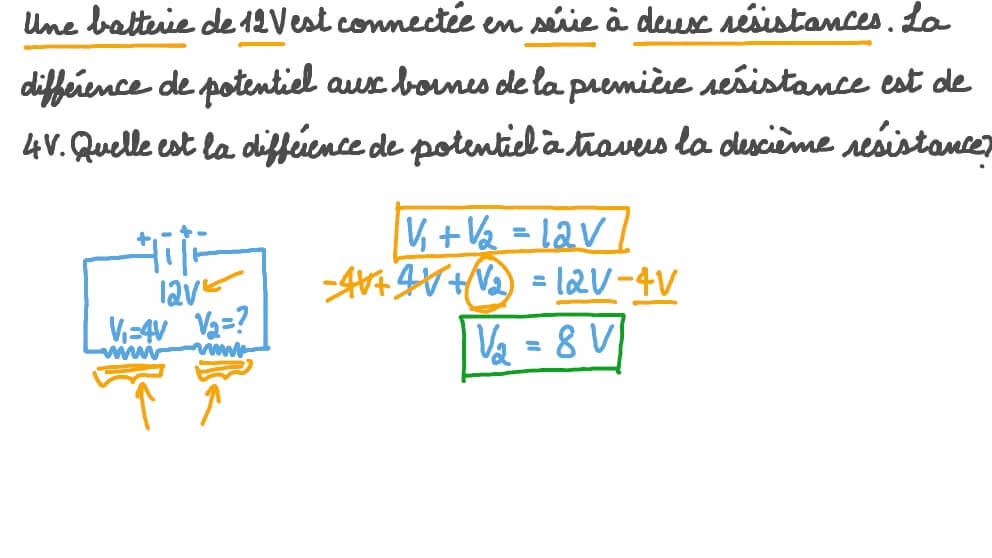 Une batterie de 12V est connectée en série à deux résistances. La
différence de potentiel aux bornes de la première résistance est de
4V. Quelle est la différence de potentiel à travers la deuxième résistance?
+ - + -
12V
V₁=4V V₂=?
V₁ + V₂ = 12V
-4V + 4V + V₂ = 12V - 4V
V₂ = 8 V